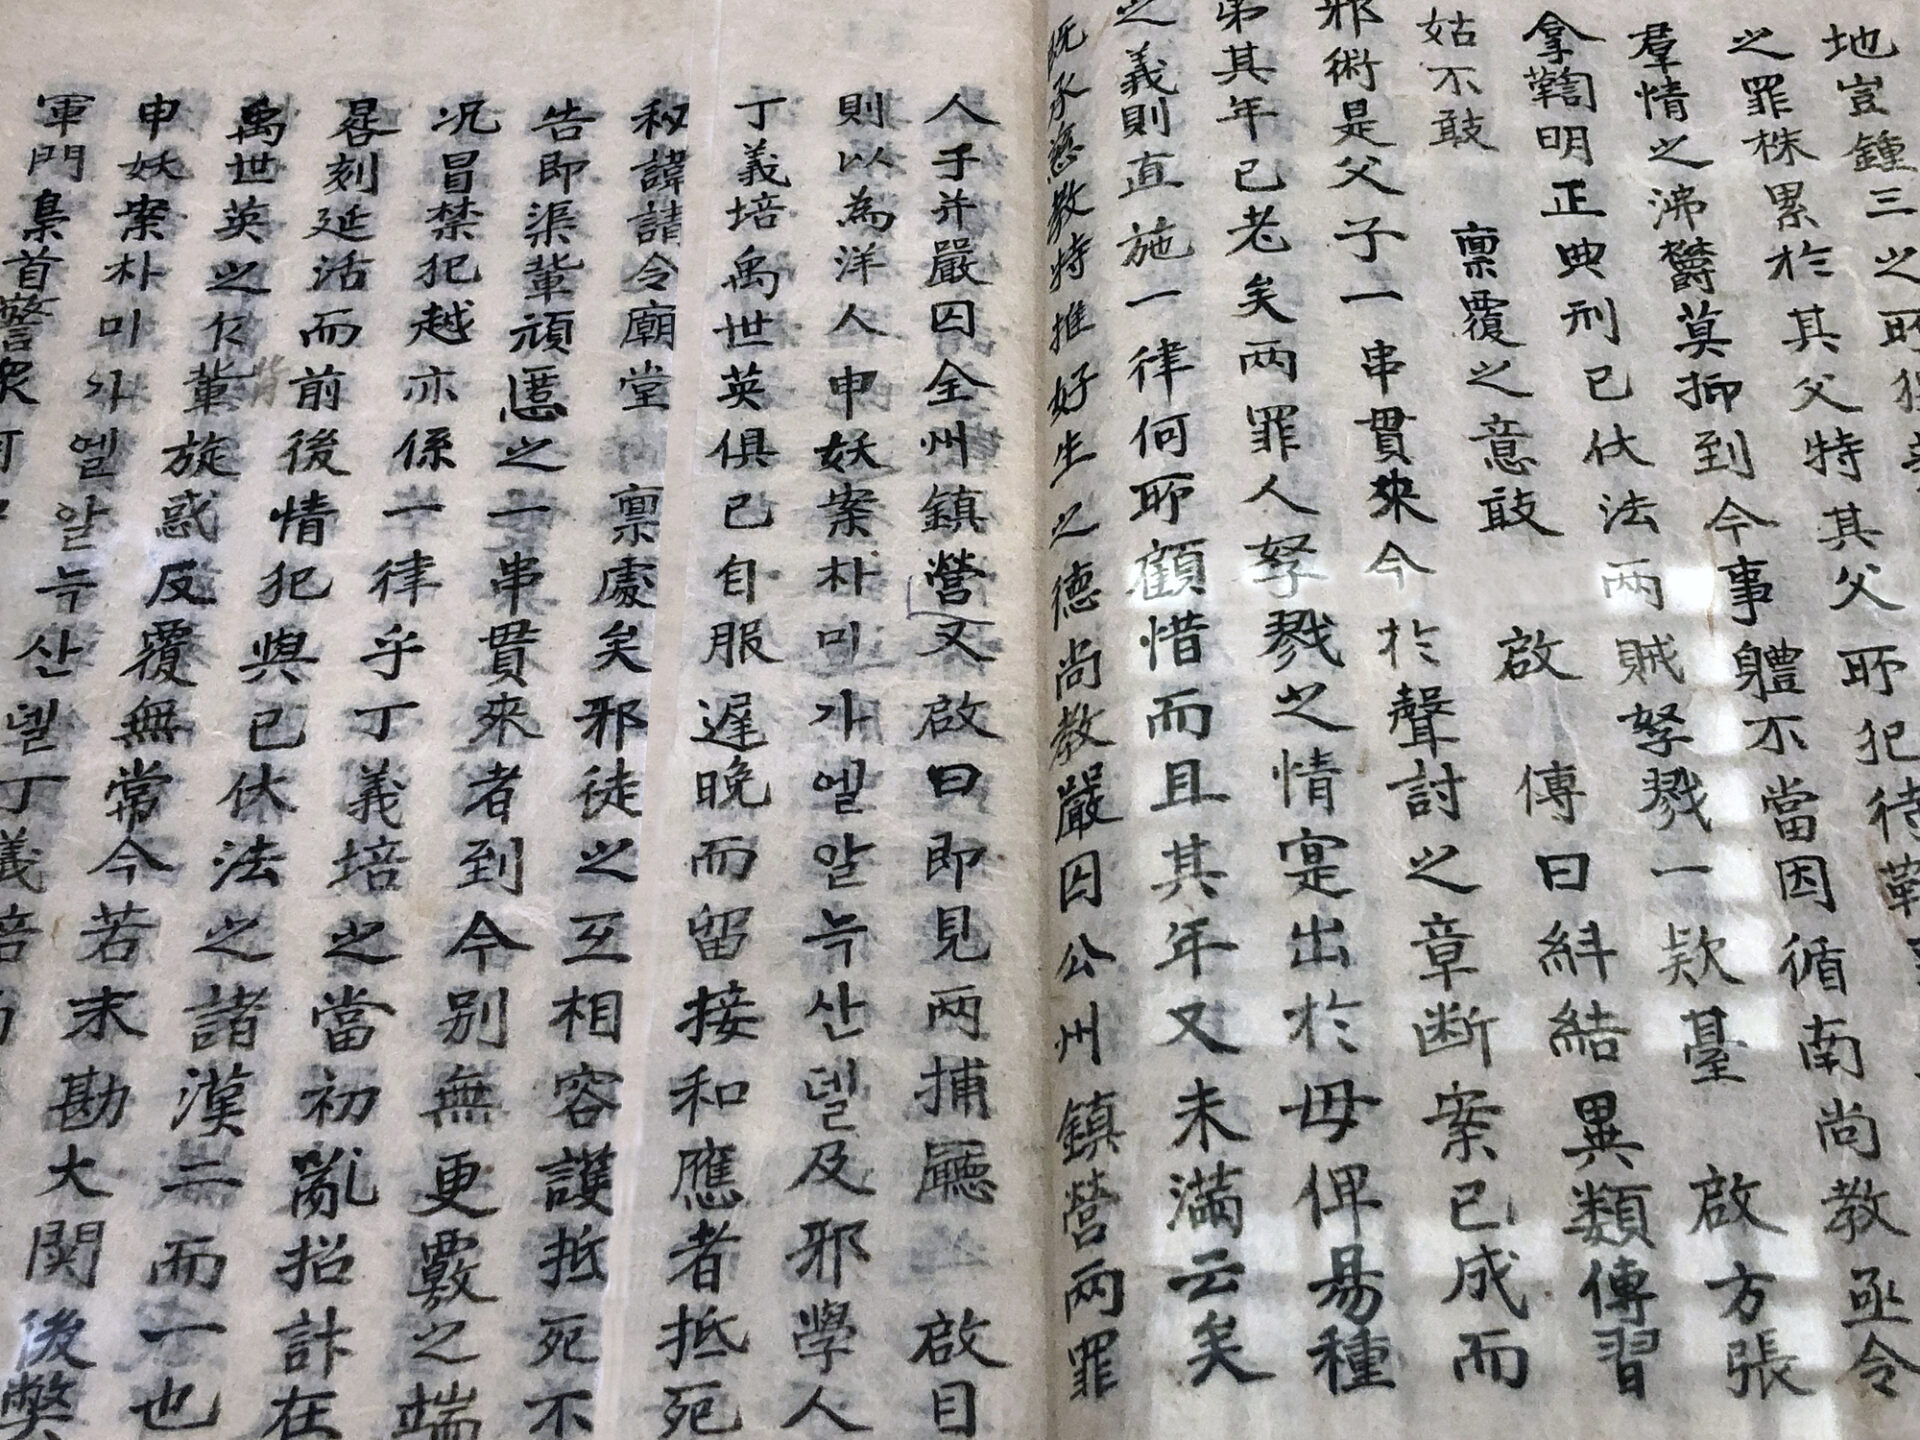 地豈鍾三之耶
之罪株累於其父特其父耶犯待
羣情之沸欝莫抑到今事軆不當因循南尚教亟令
拿鞫明正典刑已伏法兩賊孥戮一欵臺 啟方張
姑不敢 稟覆之意敢 啟 傳曰紏結異類傳習
邪術是父子一串貫來今於聲討之章断案已成而
弟其年已老矣兩罪人孥戮之情寔出於毋俾易種
之義則直施一律何耶顧惜而且其年又未滿云矣
既承慈教特推好生之德尚教嚴囚公州鎮營兩罪
人子并嚴囚全州鎮營又啟曰即見兩捕廳 啟目
則以為洋人申妖案朴미가엘알늑산델及邪學人
丁義培禹世英俱已自服遲晚而留接和應者抵死
秘諱請令廟堂 稟處矣邪徒之互相容護抵死不
告即渠輩頑慝之一串貫來者到今别無更覈之端
况冒禁犯越亦係一律乎丁義培之當初亂招計在
晷刻延活而前後情犯與已伏法之諸漢二而一也
禹世英之仄輩旋惑反覆無常今若末勘大関後弊
申妖案朴미가엘알늑산델丁義培
軍門梟首警衆